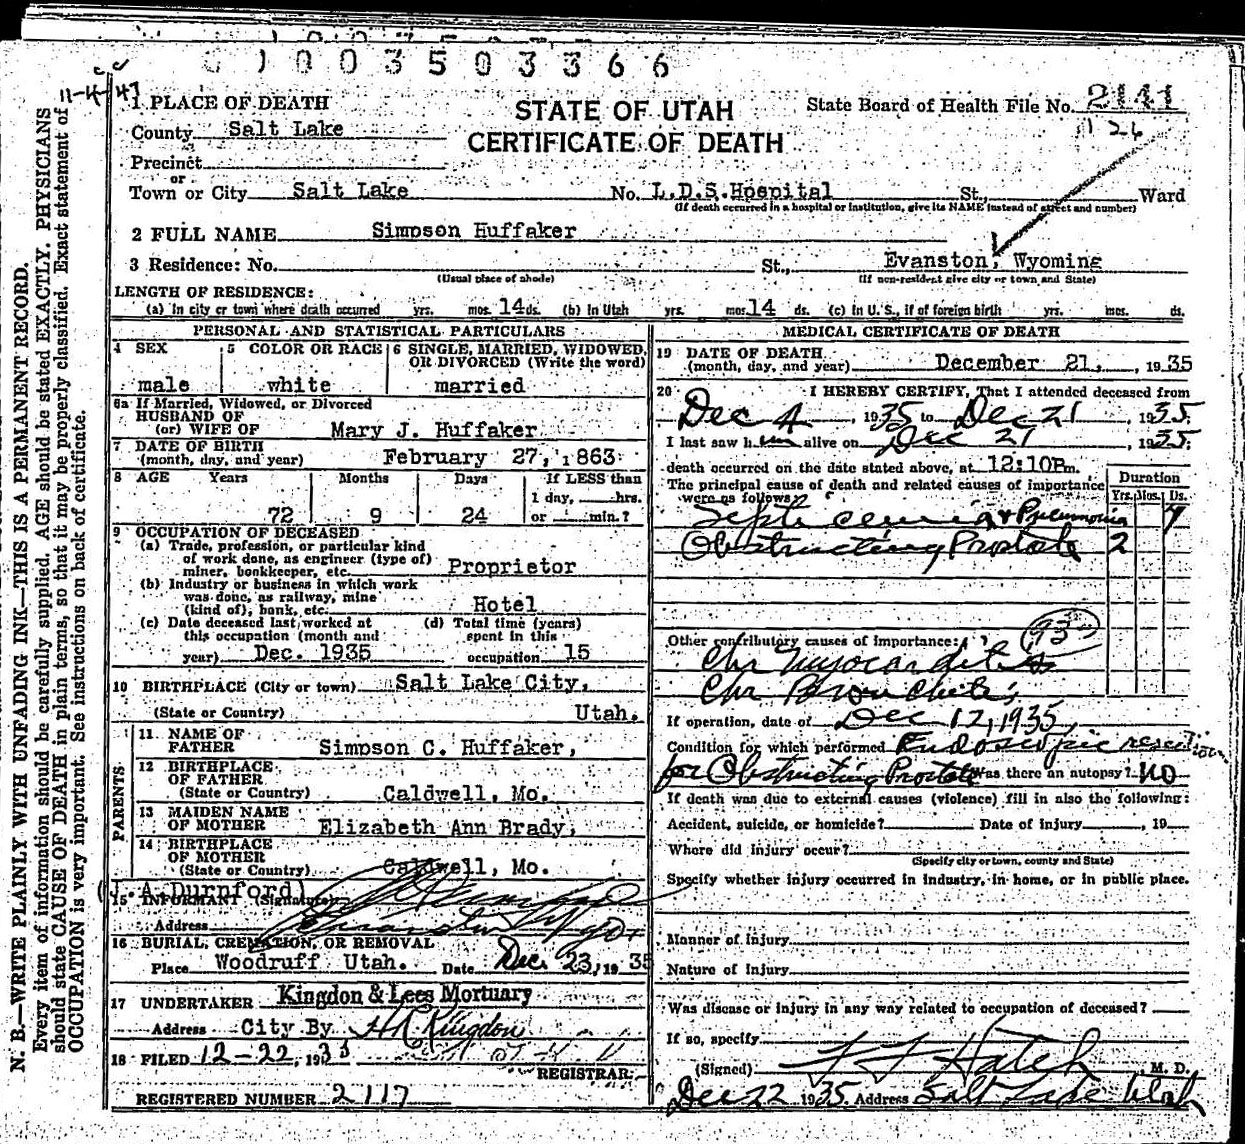 1003503366
11-4-47
1 PLACE OF DEATH
STATE OF UTAH
State Board of Health File No. 2141
County Salt Lake
CERTIFICATE OF DEATH
126
Precinct
or
Town or City Salt Lake No. L.D.S. Hospital St., Ward
(If death occurred in a hospital or institution, give its NAME instead of street and number)
2 FULL NAME Simpson Huffaker
3 Residence: No. St., Evanston, Wyoming
(Usual place of abode) (If non-resident give city or town and State)
LENGTH OF RESIDENCE:
(a) In city or town where death occurred yrs. mos. 14 ds. (b) In Utah yrs. mos. 14 ds. (c) In U. S., if of foreign birth yrs. mos. ds.
PERSONAL AND STATISTICAL PARTICULARS
4 SEX 5 COLOR OR RACE 6 SINGLE, MARRIED, WIDOWED, OR DIVORCED (Write the word)
male white married
6a If Married, Widowed, or Divorced
HUSBAND OF
(or) WIFE OF Mary J. Huffaker
7 DATE OF BIRTH
(month, day, and year) February 27, 1863
8 AGE Years Months Days If LESS than
1 day, hrs.
72 9 24 or min.?
9 OCCUPATION OF DECEASED
(a) Trade, profession, or particular kind
of work done, as engineer (type of)
miner, bookkeeper, etc. Proprietor
(b) Industry or business in which work
was done, as railway, mine
(kind of), bank, etc. Hotel
(c) Date deceased last worked at (d) Total time (years)
this occupation (month and spent in this
year) Dec. 1935 occupation 15
10 BIRTHPLACE (City or town) Salt Lake City,
(State or Country) Utah.
PARENTS
11. NAME OF
FATHER Simpson C. Huffaker,
12 BIRTHPLACE
OF FATHER
(State or Country) Caldwell, Mo.
13 MAIDEN NAME
OF MOTHER Elizabeth Ann Brady,
14 BIRTHPLACE
OF MOTHER
(State or Country) Caldwell, Mo.
(J. A. Durnford)
15 INFORMANT (Signature)
Address Evanston Wyo.
16 BURIAL, CREMATION, OR REMOVAL
Place Woodruff Utah. Date Dec. 23, 1935
17 UNDERTAKER Kingdon & Lees Mortuary
Address City By H R Kingdon
18 FILED 12-22, 1935
REGISTRAR.
REGISTERED NUMBER 2117
MEDICAL CERTIFICATE OF DEATH
19 DATE OF DEATH
(month, day, and year) December 21, 1935
20 I HEREBY CERTIFY, That I attended deceased from
Dec 4, 1935 to Dec 21, 1935.
I last saw him alive on Dec 21, 1935.
death occurred on the date stated above, at 12:10Pm.
The principal cause of death and related causes of importance
were as follows:
Duration
Yrs. Mos. Ds.
Septicemia & Pneumonia 7
Obstructing Prostate 2
Other contributory causes of importance:
Chr Myocarditis
Chr Bronchitis
If operation, date of Dec 12, 1935
Condition for which performed Endoscopic resection
for Obstructing Prostate Was there an autopsy? no
If death was due to external causes (violence) fill in also the following:
Accident, suicide, or homicide? Date of injury , 19
Where did injury occur?
(Specify city or town, county and State)
Specify whether injury occurred in industry, in home, or in public place.
Manner of Injury
Nature of Injury
Was disease or injury in any way related to occupation of deceased?
If so, specify
(Signed) F F Hatch M. D.
Dec 22 1935 Address Salt Lake Utah
N. B.—WRITE PLAINLY WITH UNFADING INK—THIS IS A PERMANENT RECORD.
Every item of information should be carefully supplied. AGE should be stated EXACTLY. PHYSICIANS
should state CAUSE OF DEATH in plain terms, so that it may be properly classified. Exact statement of
OCCUPATION is very important. See instructions on back of certificate.